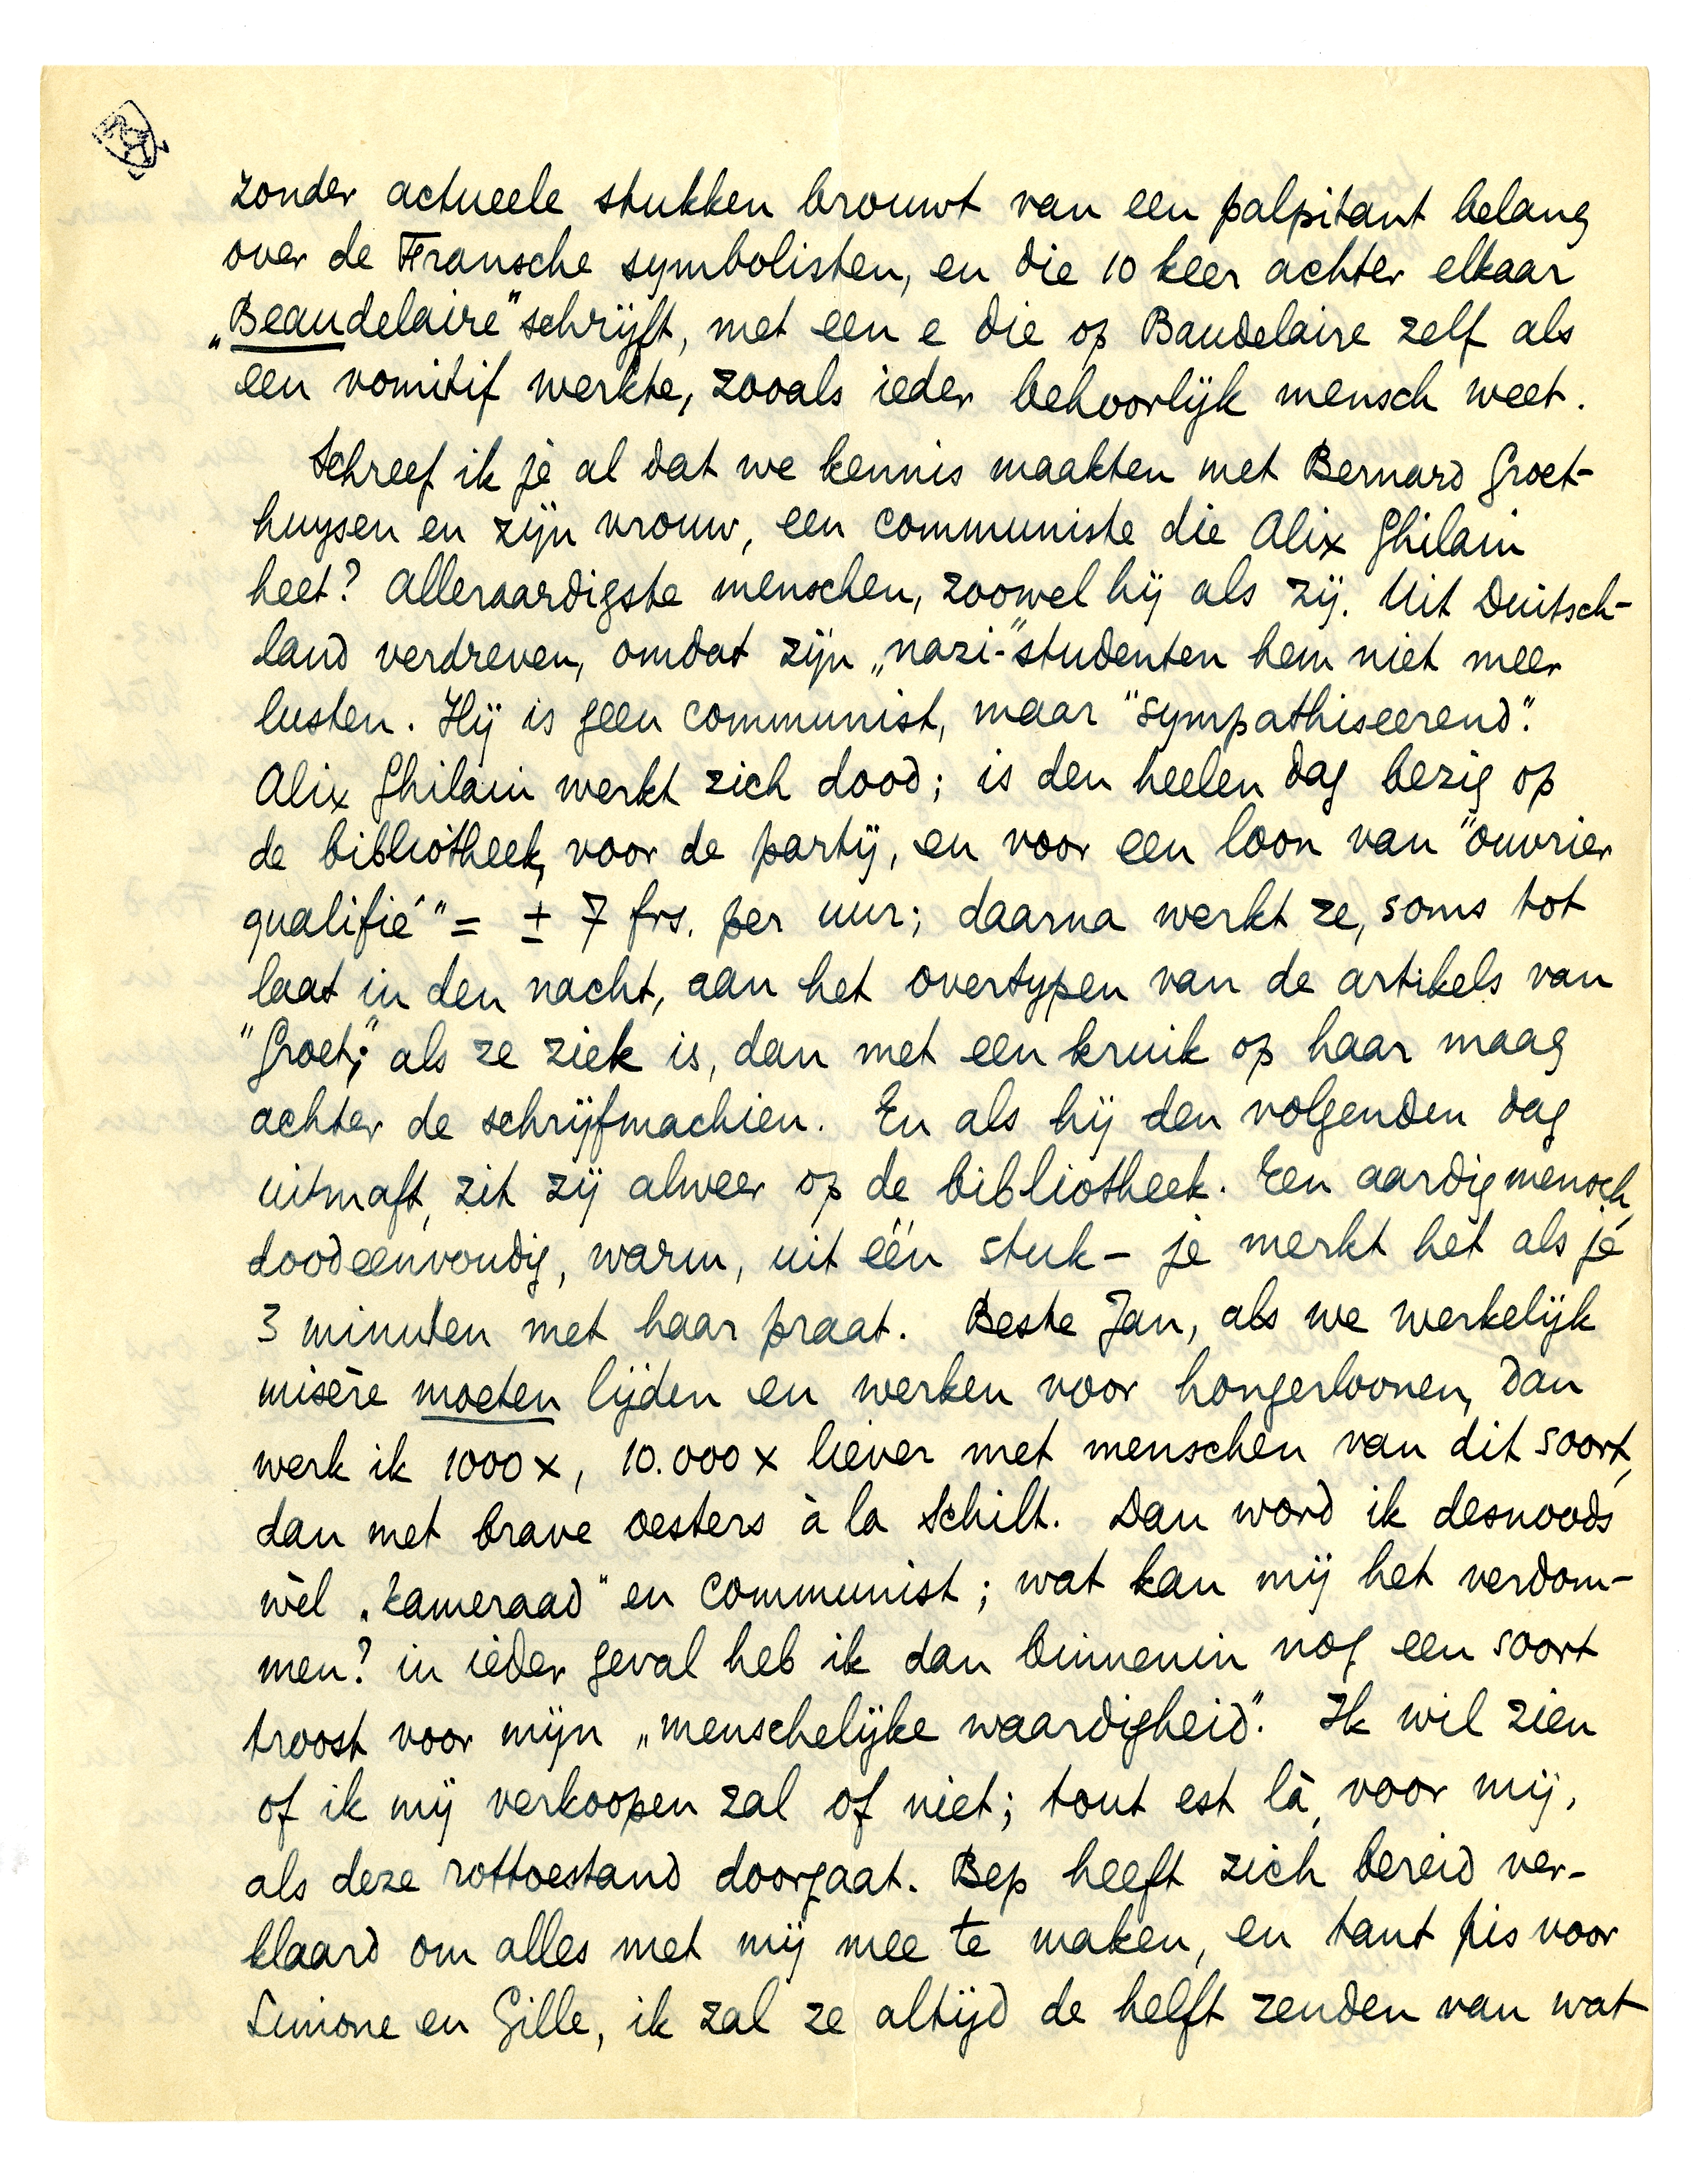 zonder actueele stukken brouwt van een palpitant belang
over de Fransche symbolisten, en die 10 keer achter elkaar
„Beaudelaire" schrijft, met een e die op Baudelaire zelf als
een vomitif werkte, zooals ieder behoorlijk mensch weet.
Schreef ik je al dat we kennis maakten met Bernard Groet-
huysen en zijn vrouw, een communiste die Alix Ghilain
heet? Alleraardigste menschen, zoowel hij als zij. Uit Duitsch-
land verdreven, omdat zijn „nazi-"studenten hem niet meer
lusten. Hij is geen communist, maar "sympathiseerend".
Alix Ghilain werkt zich dood; is den heelen dag bezig op
de bibliotheek, voor de partij, en voor een loon van "ouvrier
qualifié" = ± 7 frs. per uur; daarna werkt ze, soms tot
laat in den nacht, aan het overtypen van de artikels van
"Groet;" als ze ziek is, dan met een kruik op haar maag
achter de schrijfmachien. En als hij den volgenden dag
uitmaft, zit zij alweer op de bibliotheek. Een aardig mensch,
doodeenvoudig, warm, uit één stuk – je merkt het als je
3 minuten met haar praat. Beste Jan, als we werkelijk
misère moeten lijden en werken voor hongerloonen, dan
werk ik 1000 x, 10.000 x liever met menschen van dit soort,
dan met brave oesters à la Schilt. Dan word ik desnoods
wèl „kameraad" en communist; wat kan mij het verdom-
men? in ieder geval heb ik dan binnenin nog een soort
troost voor mijn „menschelijke waardigheid". Ik wil zien
of ik mij verkoopen zal of niet; tout est là, voor mij,
als deze rottoestand doorgaat. Bep heeft zich bereid ver-
klaard om alles met mij mee te maken, en tant pis voor
Simone en Gille, ik zal ze altijd de helft zenden van wat